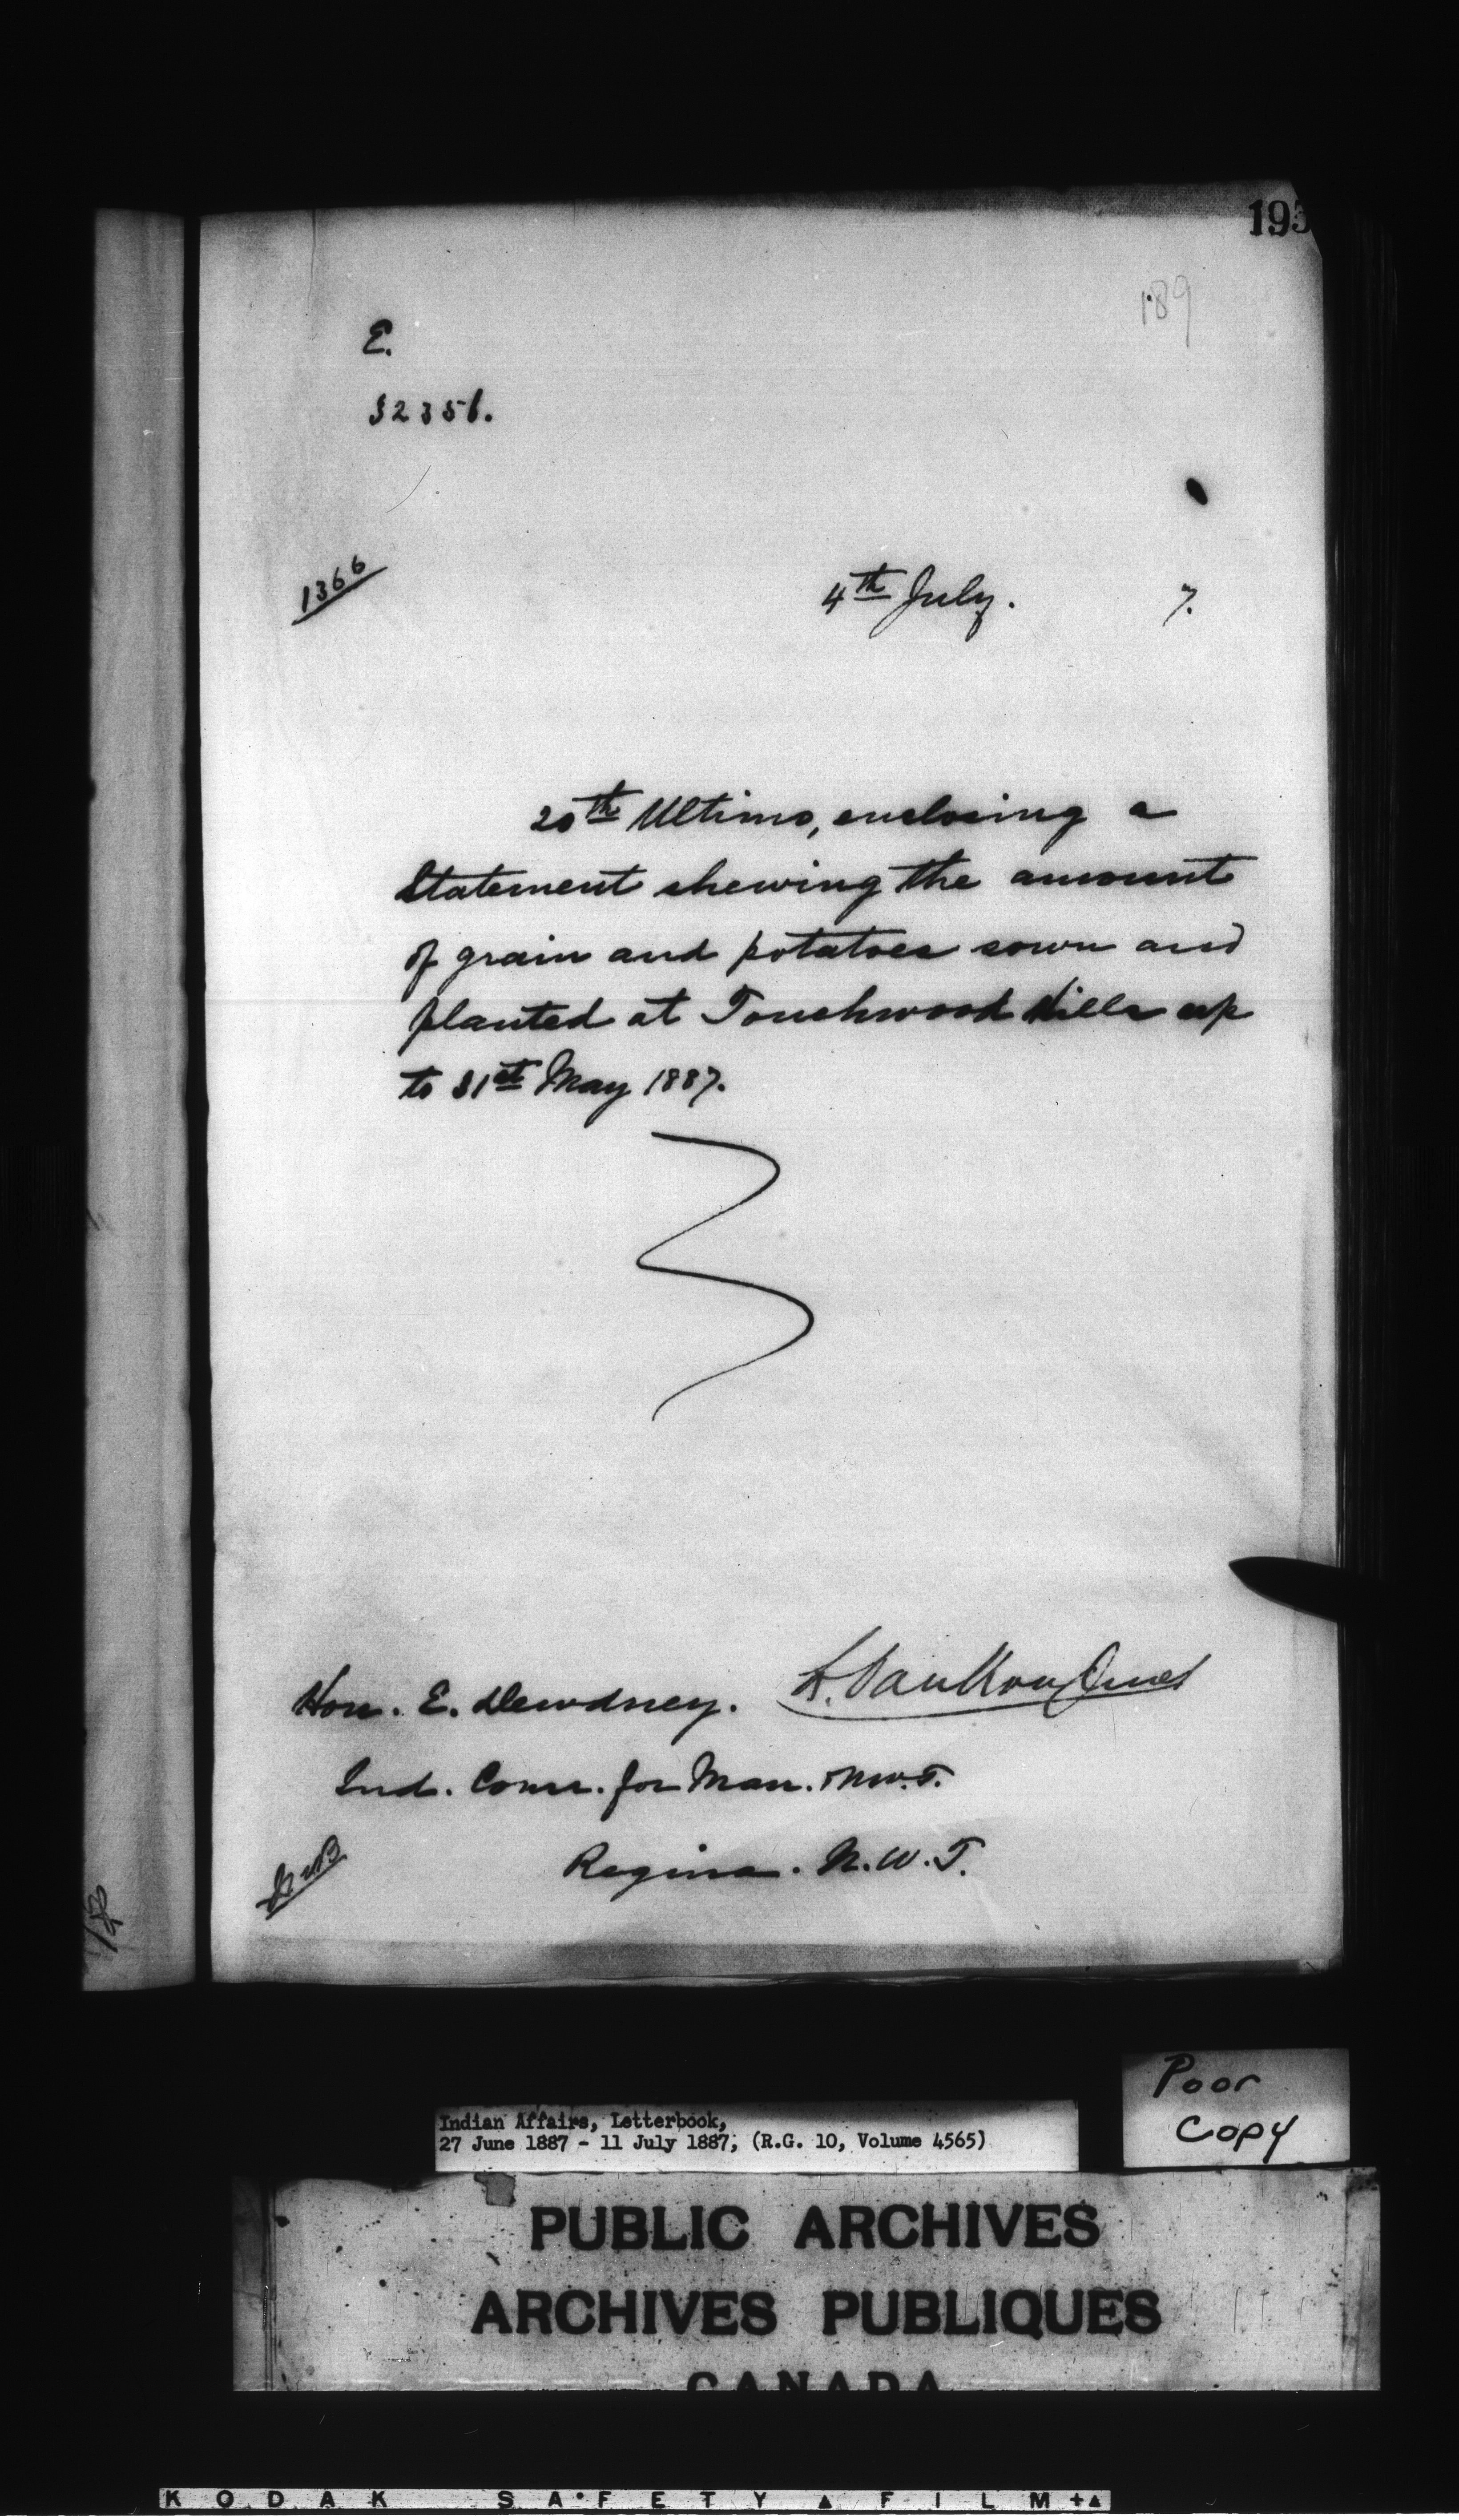 193
189
E.
32356.
1366
4th July. 7.
20th Ultimo, enclosing a
Statement shewing the amount
of grain and potatoes sown and
planted at Touchwood Hills up
to 31st May 1887.
L. VanKoughnet
Hon. E. Dewdney.
Ind. Comr. for Man. & N.W.T.
Regina. N.W.T.
Poor
Copy
Indian Affairs, Letterbook,
27 June 1887 - 11 July 1887, (R.G. 10, Volume 4565)
PUBLIC ARCHIVES
ARCHIVES PUBLIQUES
CANADA
KODAK SAFETY FILM